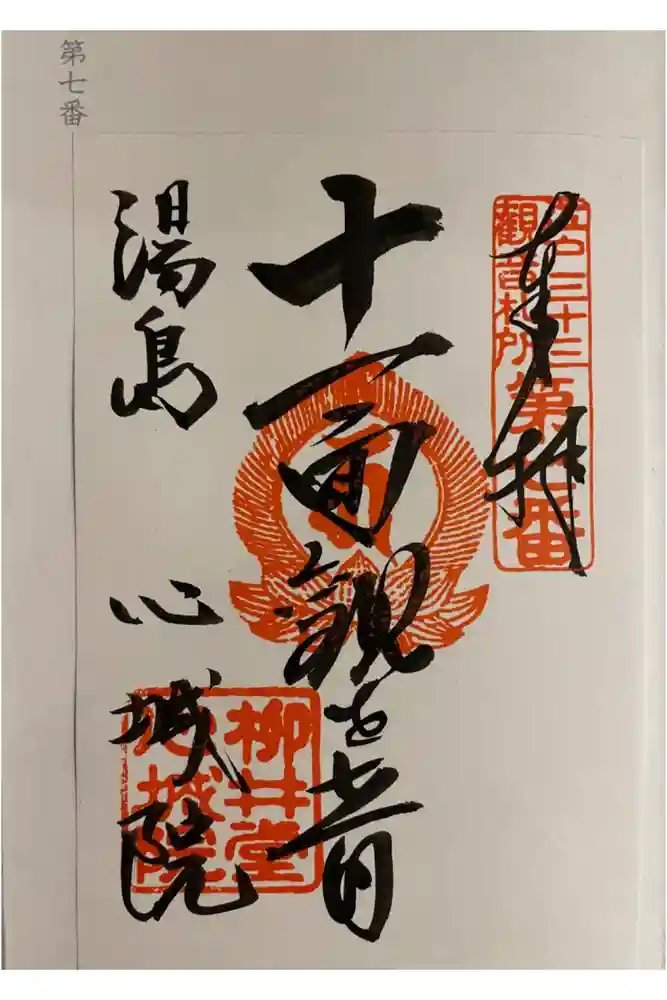 第七番
奉拝
江戸三十三
観音札所
第七番
十一面観世音
湯島
心城院
柳井堂
心城院